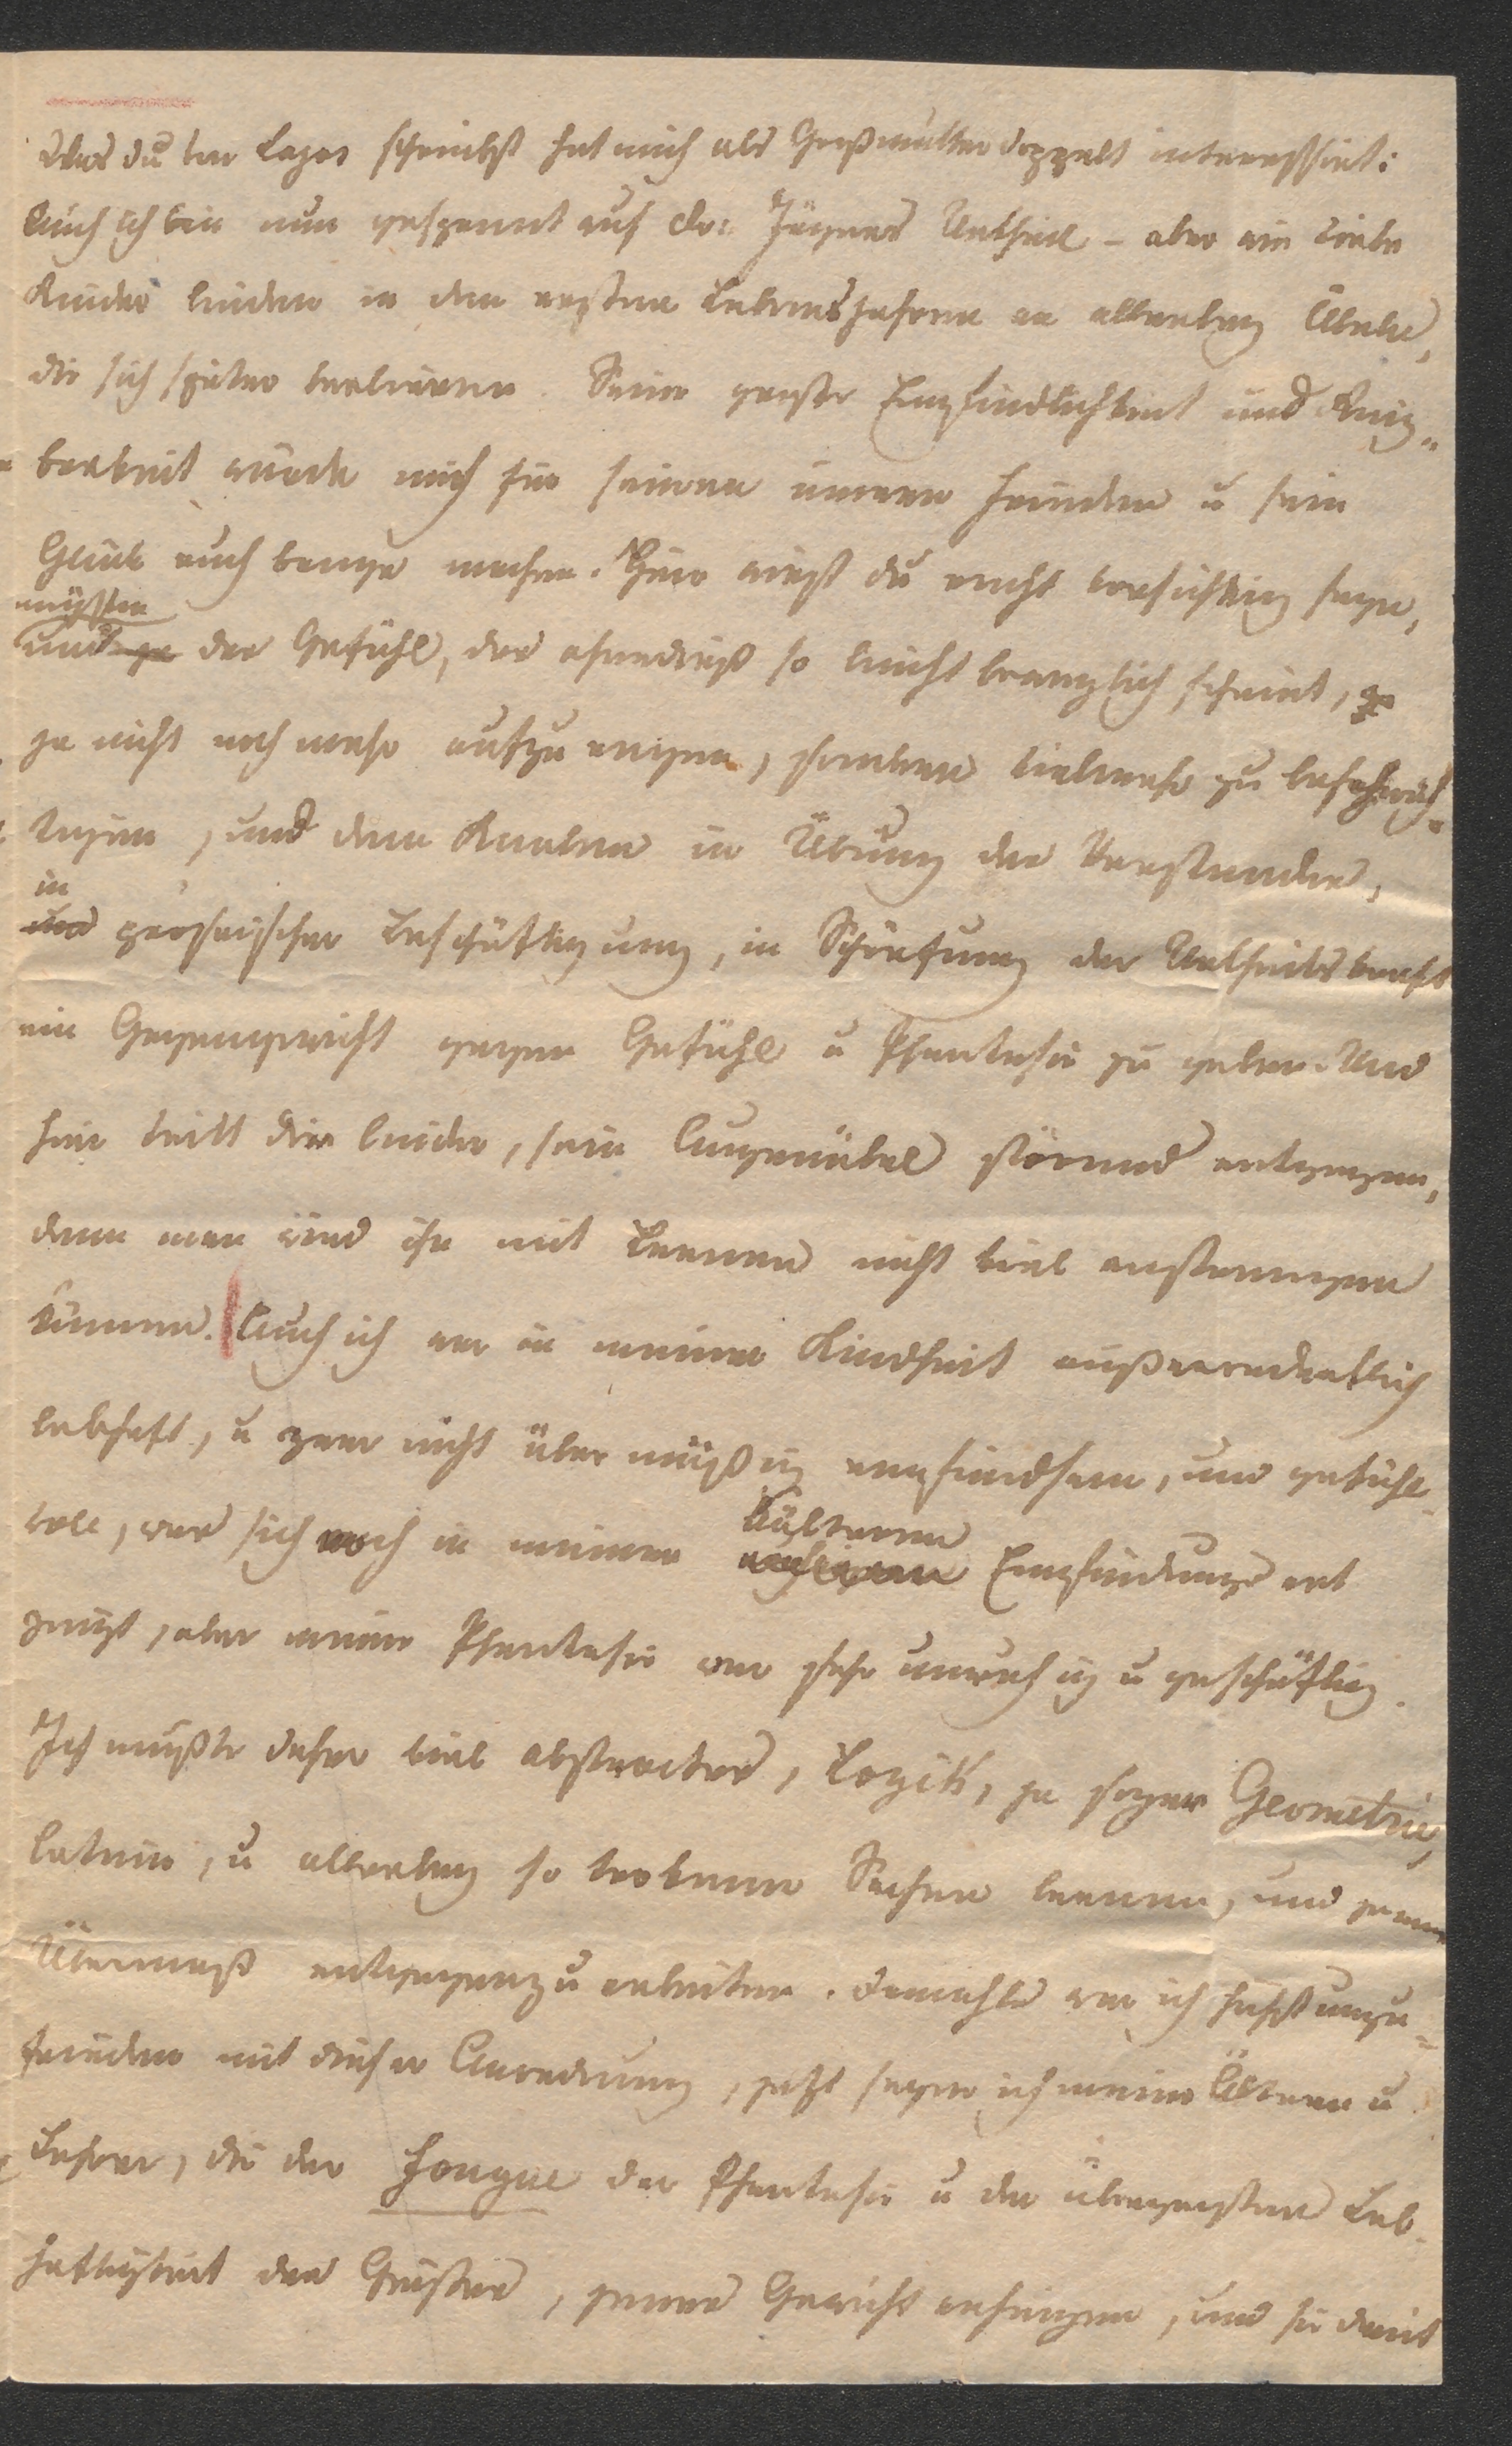 Was du von Lajos schreibst hat mich als Großmutter doppelt interessirt:
Auch ich bin nun gespannt auf des Jägers Urtheil – aber wie viele
Kinder leiden in den ersten Lebensjahren an allerley Übeln,
die sich später verlieren. Seine große Empfindlichkeit und Reitz-
barkeit würde mich für seinen innern Frieden u sein
Glück auch bange machen. Hier wirst du recht vorsichtig seyn,
müssen
das Gefühl, das ohnedieß so leicht beweglich scheint,
ja nicht noch mehr aufzuregen, sondern vielmehr zu beschwich-
tigen, und dem Knaben in Übung des Verstandes,
in
prosaischer Beschäftigung, in Schärfung der Urtheilskraft
ein Gegengewicht gegen Gefühl u Phantasie zu geben. Und
hier tritt dir leider, sein Augenübel störend entgegen,
denn man wird ihn mit Lernen nicht viel anstrengen
können. Auch ich war in meiner Kindheit außerordentlich
lebhaft, u zwar nicht übermäßig empfindsam, und gefühl-
voll, was sich noch in meiner kälteren Empfindungsart
zeigt, aber meine Phantasie war sehr unruhig u geschäftig.
Ich mußte daher viel abstractes, Logik, ja sogar Geometrie,
Latein, u allerley so trokene Sachen lernen, um jenem
Übermaß entgegenzuarbeiten. Damahls war ich höchst unzu-
frieden mit dieser Anordnung, jetzt segne ich meine Ältern u
Lehrer, die der Fougue der Phantasie u der übergroßen Leb-
haftigkeit des Geistes, jenes Gewicht anhingen, und sie damit